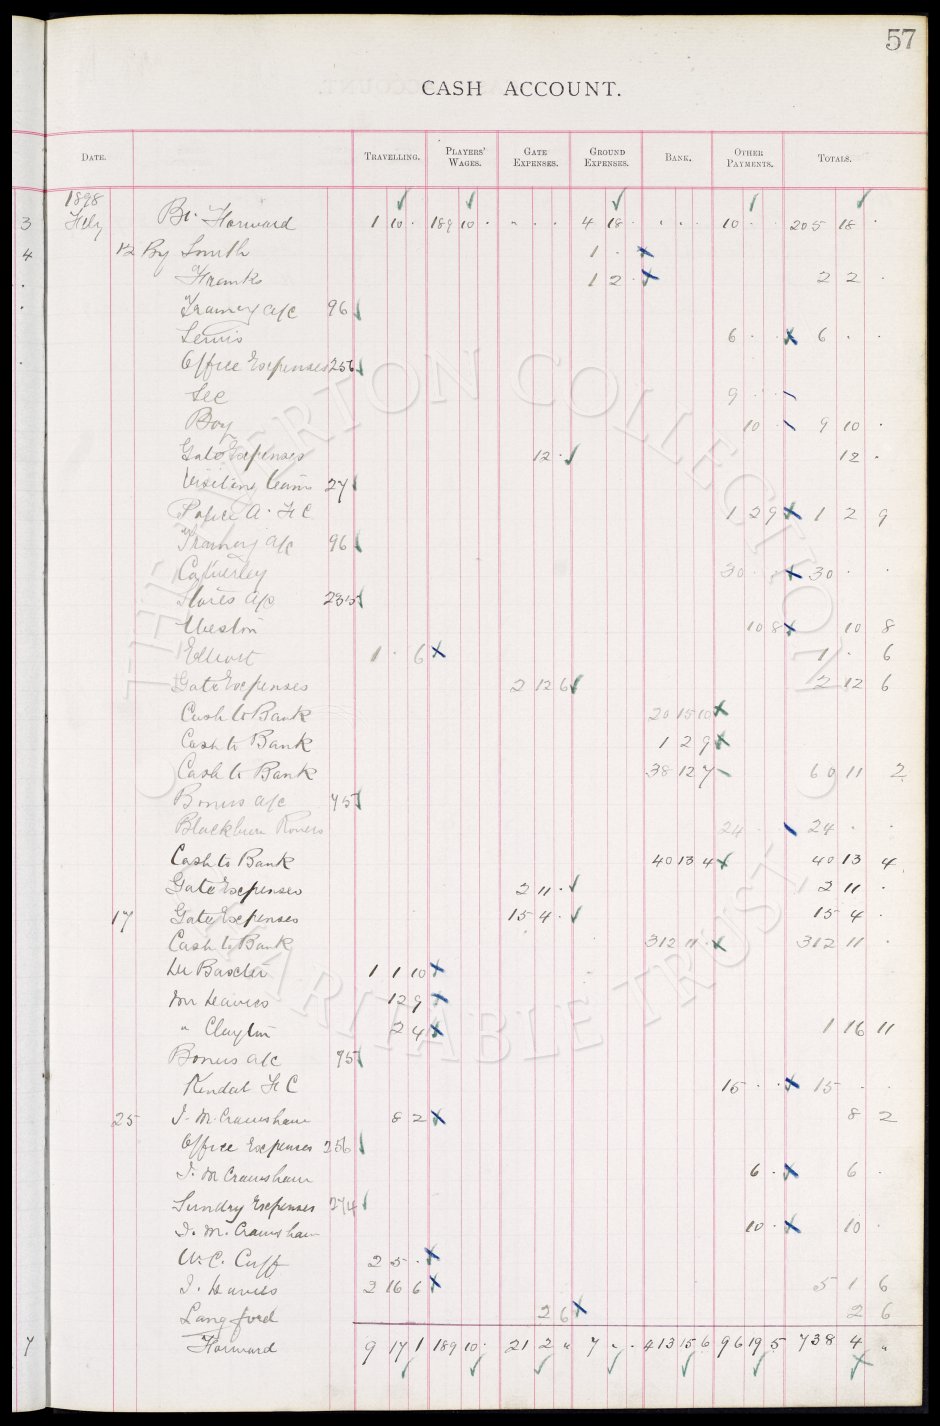 57
CASH ACCOUNT.
DATE. TRAVELLING. PLAYERS' WAGES. GATE EXPENSES. GROUND EXPENSES. BANK. OTHER PAYMENTS. TOTALS.
1898
3 Feby Bt. Forward 1 10 . 189 10 . . . . 4 18 . . . . 10 . . 205 18 .
4 12 By Smith 1 .
Franks 1 2 . 2 2 .
a/c 96
Lewis 6 . . 6 . .
Office Expenses 256
Lee 9 . .
Boy 10 . 9 10 .
Gate Expenses 12 . 12 .
Visiting teams 27
Police A. F C 1 2 9 1 2 9
a/c 96
30 . . 30 . .
Stores a/c 235
Weston 10 8 10 8
Elliott 1 . 6 1 . 6
Gate Expenses 2 12 6 2 12 6
Cash to Bank 20 15 10
Cash to Bank 1 2 9
Cash to Bank 38 12 7 60 11 2
Bonus a/c 75
Blackburn Rovers 24 . . 24 . .
Cash to Bank 40 13 4 40 13 4
Gate Expenses 2 11 . 2 11 .
17 Gate Expenses 15 4 . 15 4 .
Cash to Bank 312 11 . 312 11 .
Baxter 1 1 10
12 9
" Clayton 2 4 1 16 11
Bonus a/c 75
Kendal F C 15 . . 15 . .
25 J. M. Cramshaw 8 2 8 2
Office Expenses 256
J. M Cramshaw 6 . 6 .
Sundry Expenses 274
J. M. Cramshaw 10 . 10 .
W. C. Cuff 2 5 .
J. Davies 2 16 6 5 1 6
Langford 2 6 2 6
7 Forward 9 17 1 189 10 . 21 2 " 7 " . 413 15 6 96 19 5 738 4 "
THE EVERTON COLLECTION
CHARITABLE TRUST